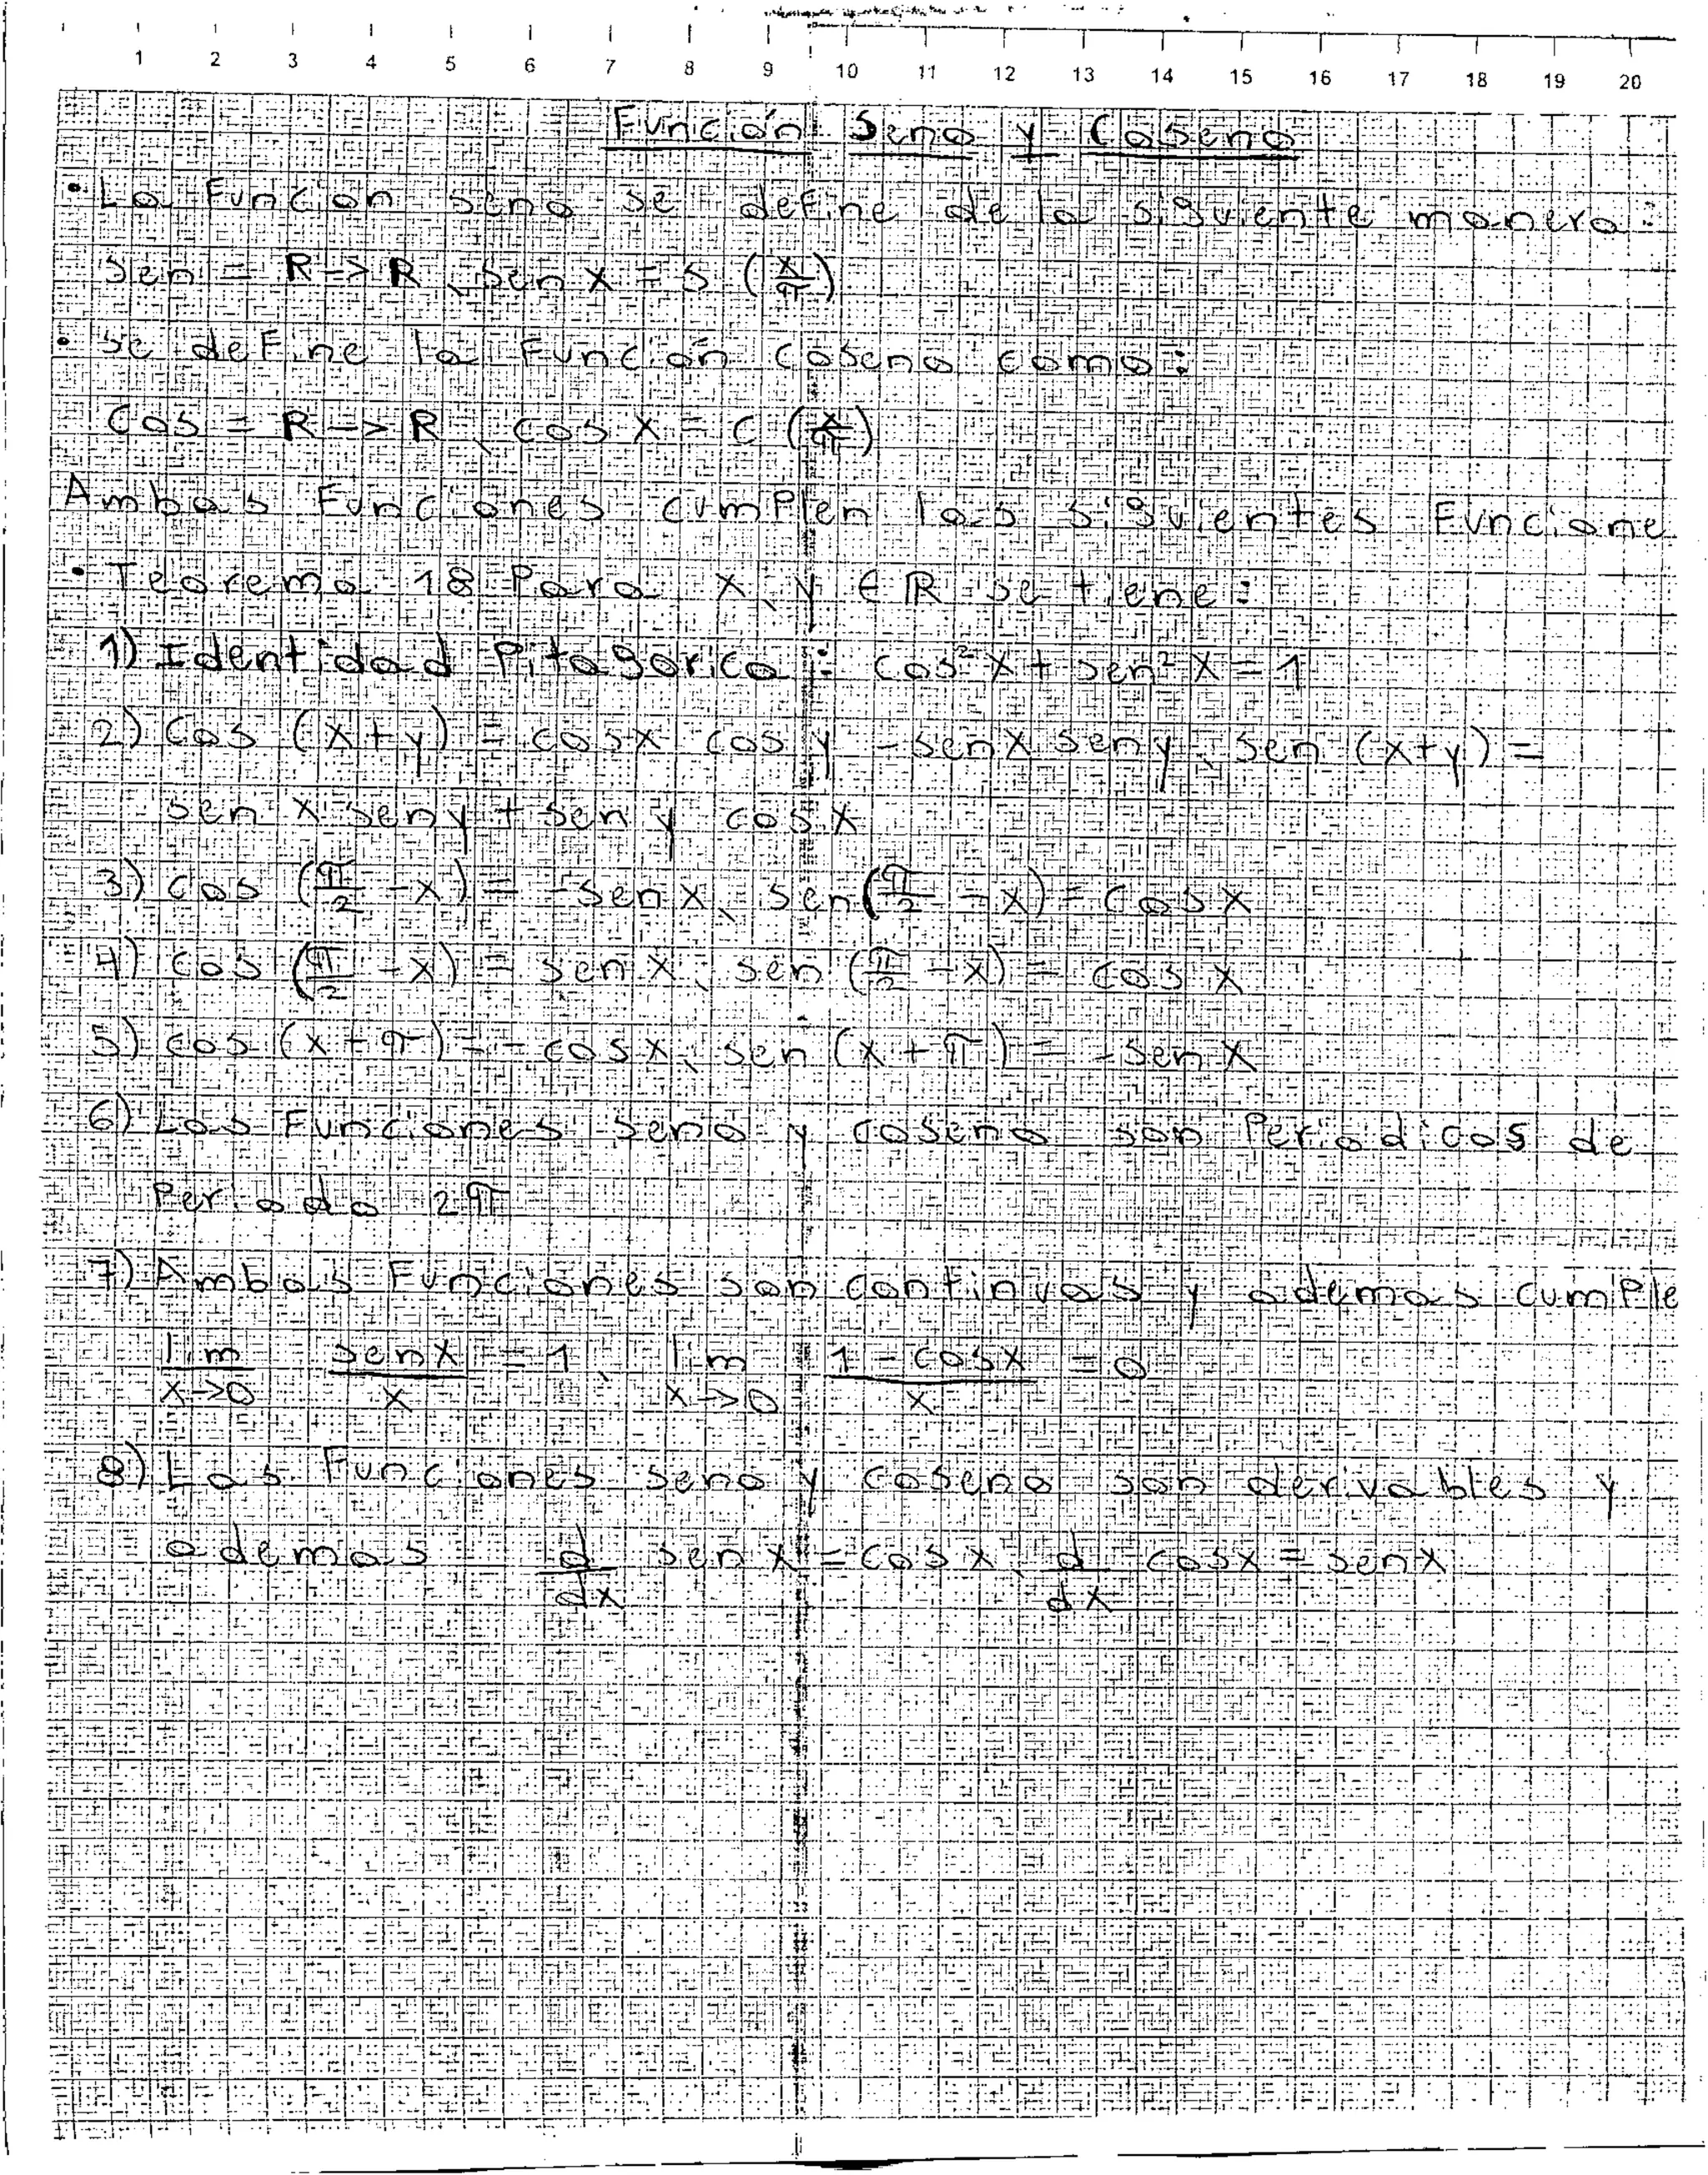 1 2 3 4 5 6 7 8 9 10 11 12 13 14 15 16 17 18 19 20
Función Seno y Coseno
• La Función seno se define de la siguiente manera:
sen = R -> R, sen x = s (x/π)
• se define la Función coseno como:
Cos = R -> R, cos x = c (x/π)
Ambas Funciones cumplen las siguientes Funcione
• Teorema 18 Para x, y ∈ R se tiene:
1) Identidad Pitagorica: cos² x + sen² x = 1
2) Cos (x+y) = cosx cos y - senx seny, sen (x+y) =
sen x seny + sen y cosx
3) cos (π/2 - x) = -sen x, sen (π/2 - x) = cosx
4) cos (π/2 - x) = sen x, sen (π/2 - x) = cos x
5) cos (x + π) = - cosx, sen (x + π) = -sen x
6) Las Funciones seno y coseno son Periodicas de
Periodo 2π
7) Ambas Funciones son continuas y ademas cumple
lim x->0 senx/x = 1, lim x->0 1 - cosx/x = 0
8) Las Funciones seno y coseno son derivables y
ademas d/dx sen x = cosx, d/dx cosx = senx